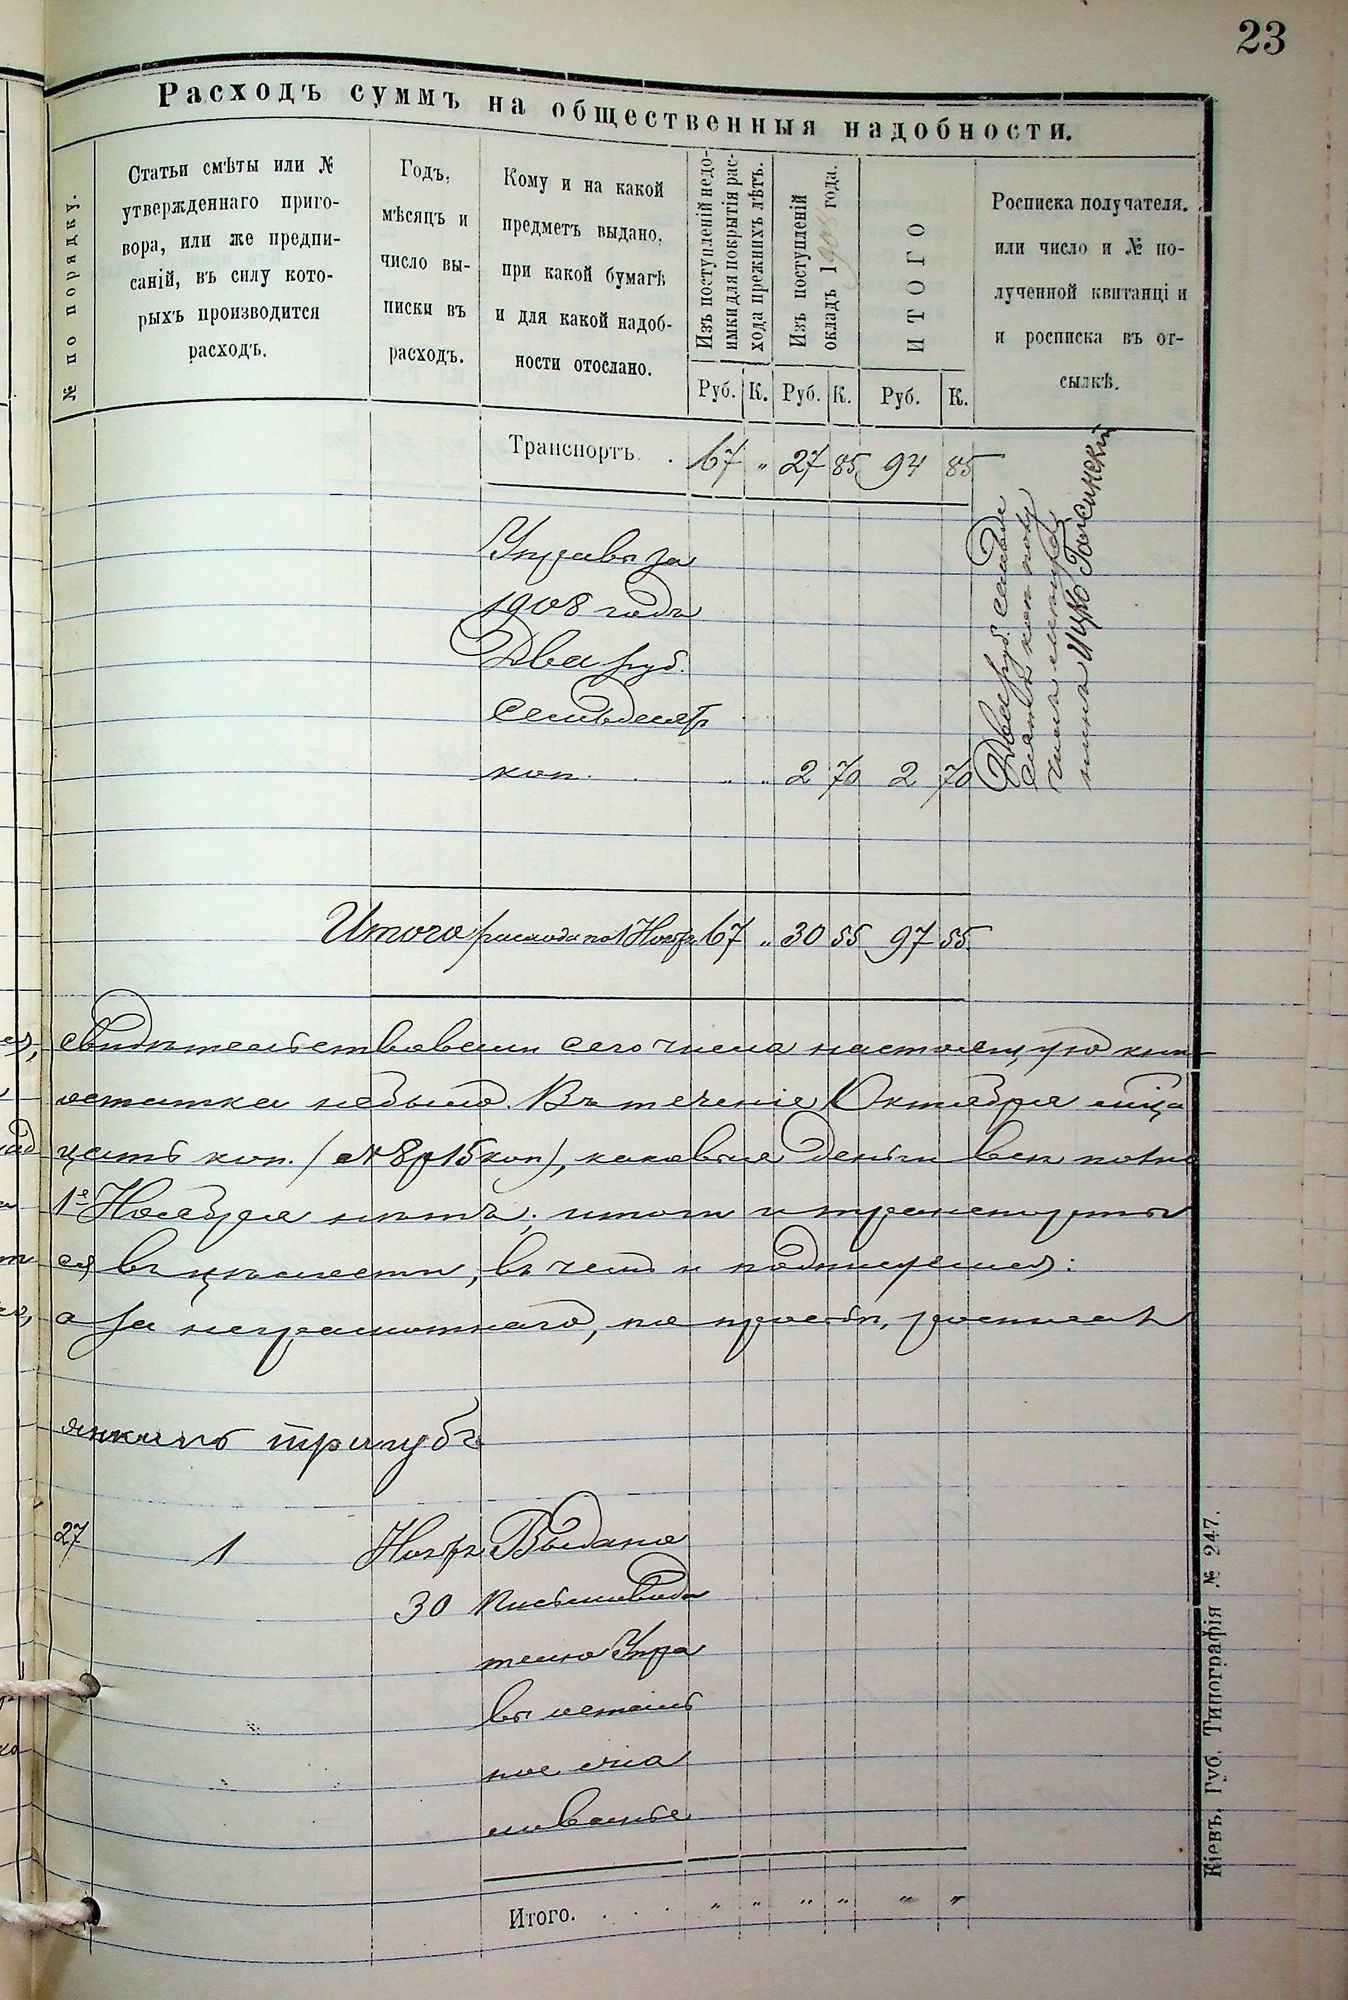 23
Расходъ суммъ на общественныя надобности.
№ по порядку.
Статьи смѣты или №
утвержденнаго приго-
вора, или же предпи-
саній, въ силу кото-
рыхъ производится
расходъ.
Годъ,
мѣсяцъ и
число вы-
писки въ
расходъ.
Кому и на какой
предметъ выдано,
при какой бумагѣ
и для какой надоб-
ности отослано.
Изъ поступленій недо-
имки для покрытія рас-
хода прежнихъ лѣтъ.
Изъ поступленій
окладъ 1908 года.
ИТОГО
Росписка получателя.
или число и № по-
лученной квитанці и
и росписка въ от-
сылкѣ.
Руб. К. Руб. К. Руб. К.
Транспортъ. . 67 „ 27 85 94 85
Управы за
1908 годъ
Два руб.
семьдесятъ
коп. . . „ „ 2 70 2 70
Два руб. семьде
сятъ коп полу
чилъ
Ицко
Итого расхода по 1 Ноябр 67 „ 30 55 97 55
свидѣтельствовали сего числа настоящую кни
остатка небыло. Въ теченіе Октября мѣца
цать коп. ( 8р 15 коп), каковые деньги всѣ
1е Ноября нѣтъ; итоги и транспорты
ся въ цѣлости, въ чемъ и подпишемся:
а за неграмотнаго, по просьбѣ, росписался
янкель
27 1 Ноябр Выдано
30 Письмоводи
телю Упра
вы осталь
ное
лованье
Итого. . . . „ „ „ „ „ „
Кіевъ. Губ. Типографія № 247.